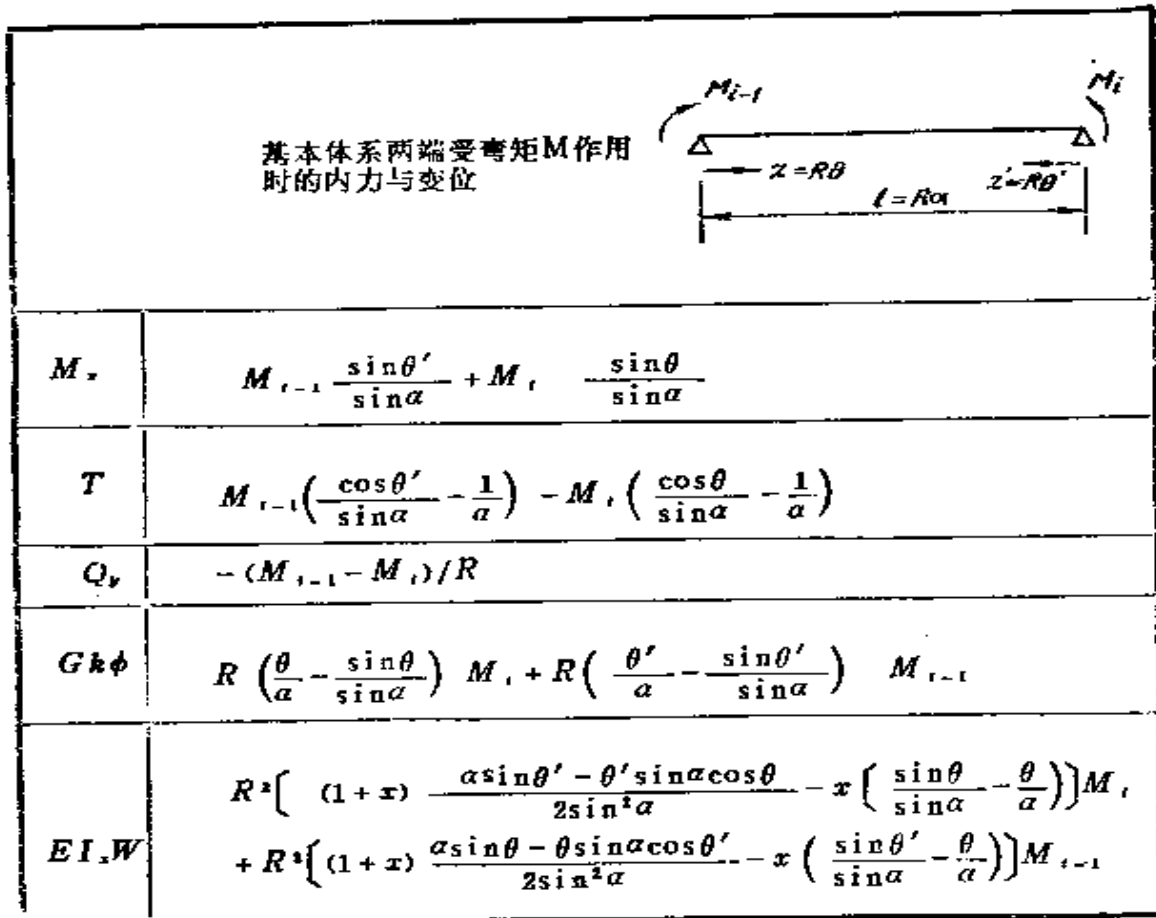 M_{i-1}
M_i
基本体系两端受弯矩M作用
时的内力与变位
z=Rθ
z'=Rθ'
l=Rα
M_x
M_{i-1} sinθ'/sinα + M_i sinθ/sinα
T
M_{i-1}(cosθ'/sinα - 1/α) - M_i(cosθ/sinα - 1/α)
Q_y
-(M_{i-1} - M_i)/R
Gkϕ
R(θ/α - sinθ/sinα) M_i + R(θ'/α - sinθ'/sinα) M_{i-1}
EI_xW
R²[(1+x) (αsinθ' - θ'sinαcosθ)/(2sin²α) - x(sinθ/sinα - θ/α)]M_i
+ R²[(1+x) (αsinθ - θsinαcosθ')/(2sin²α) - x(sinθ'/sinα - θ/α)]M_{i-1}